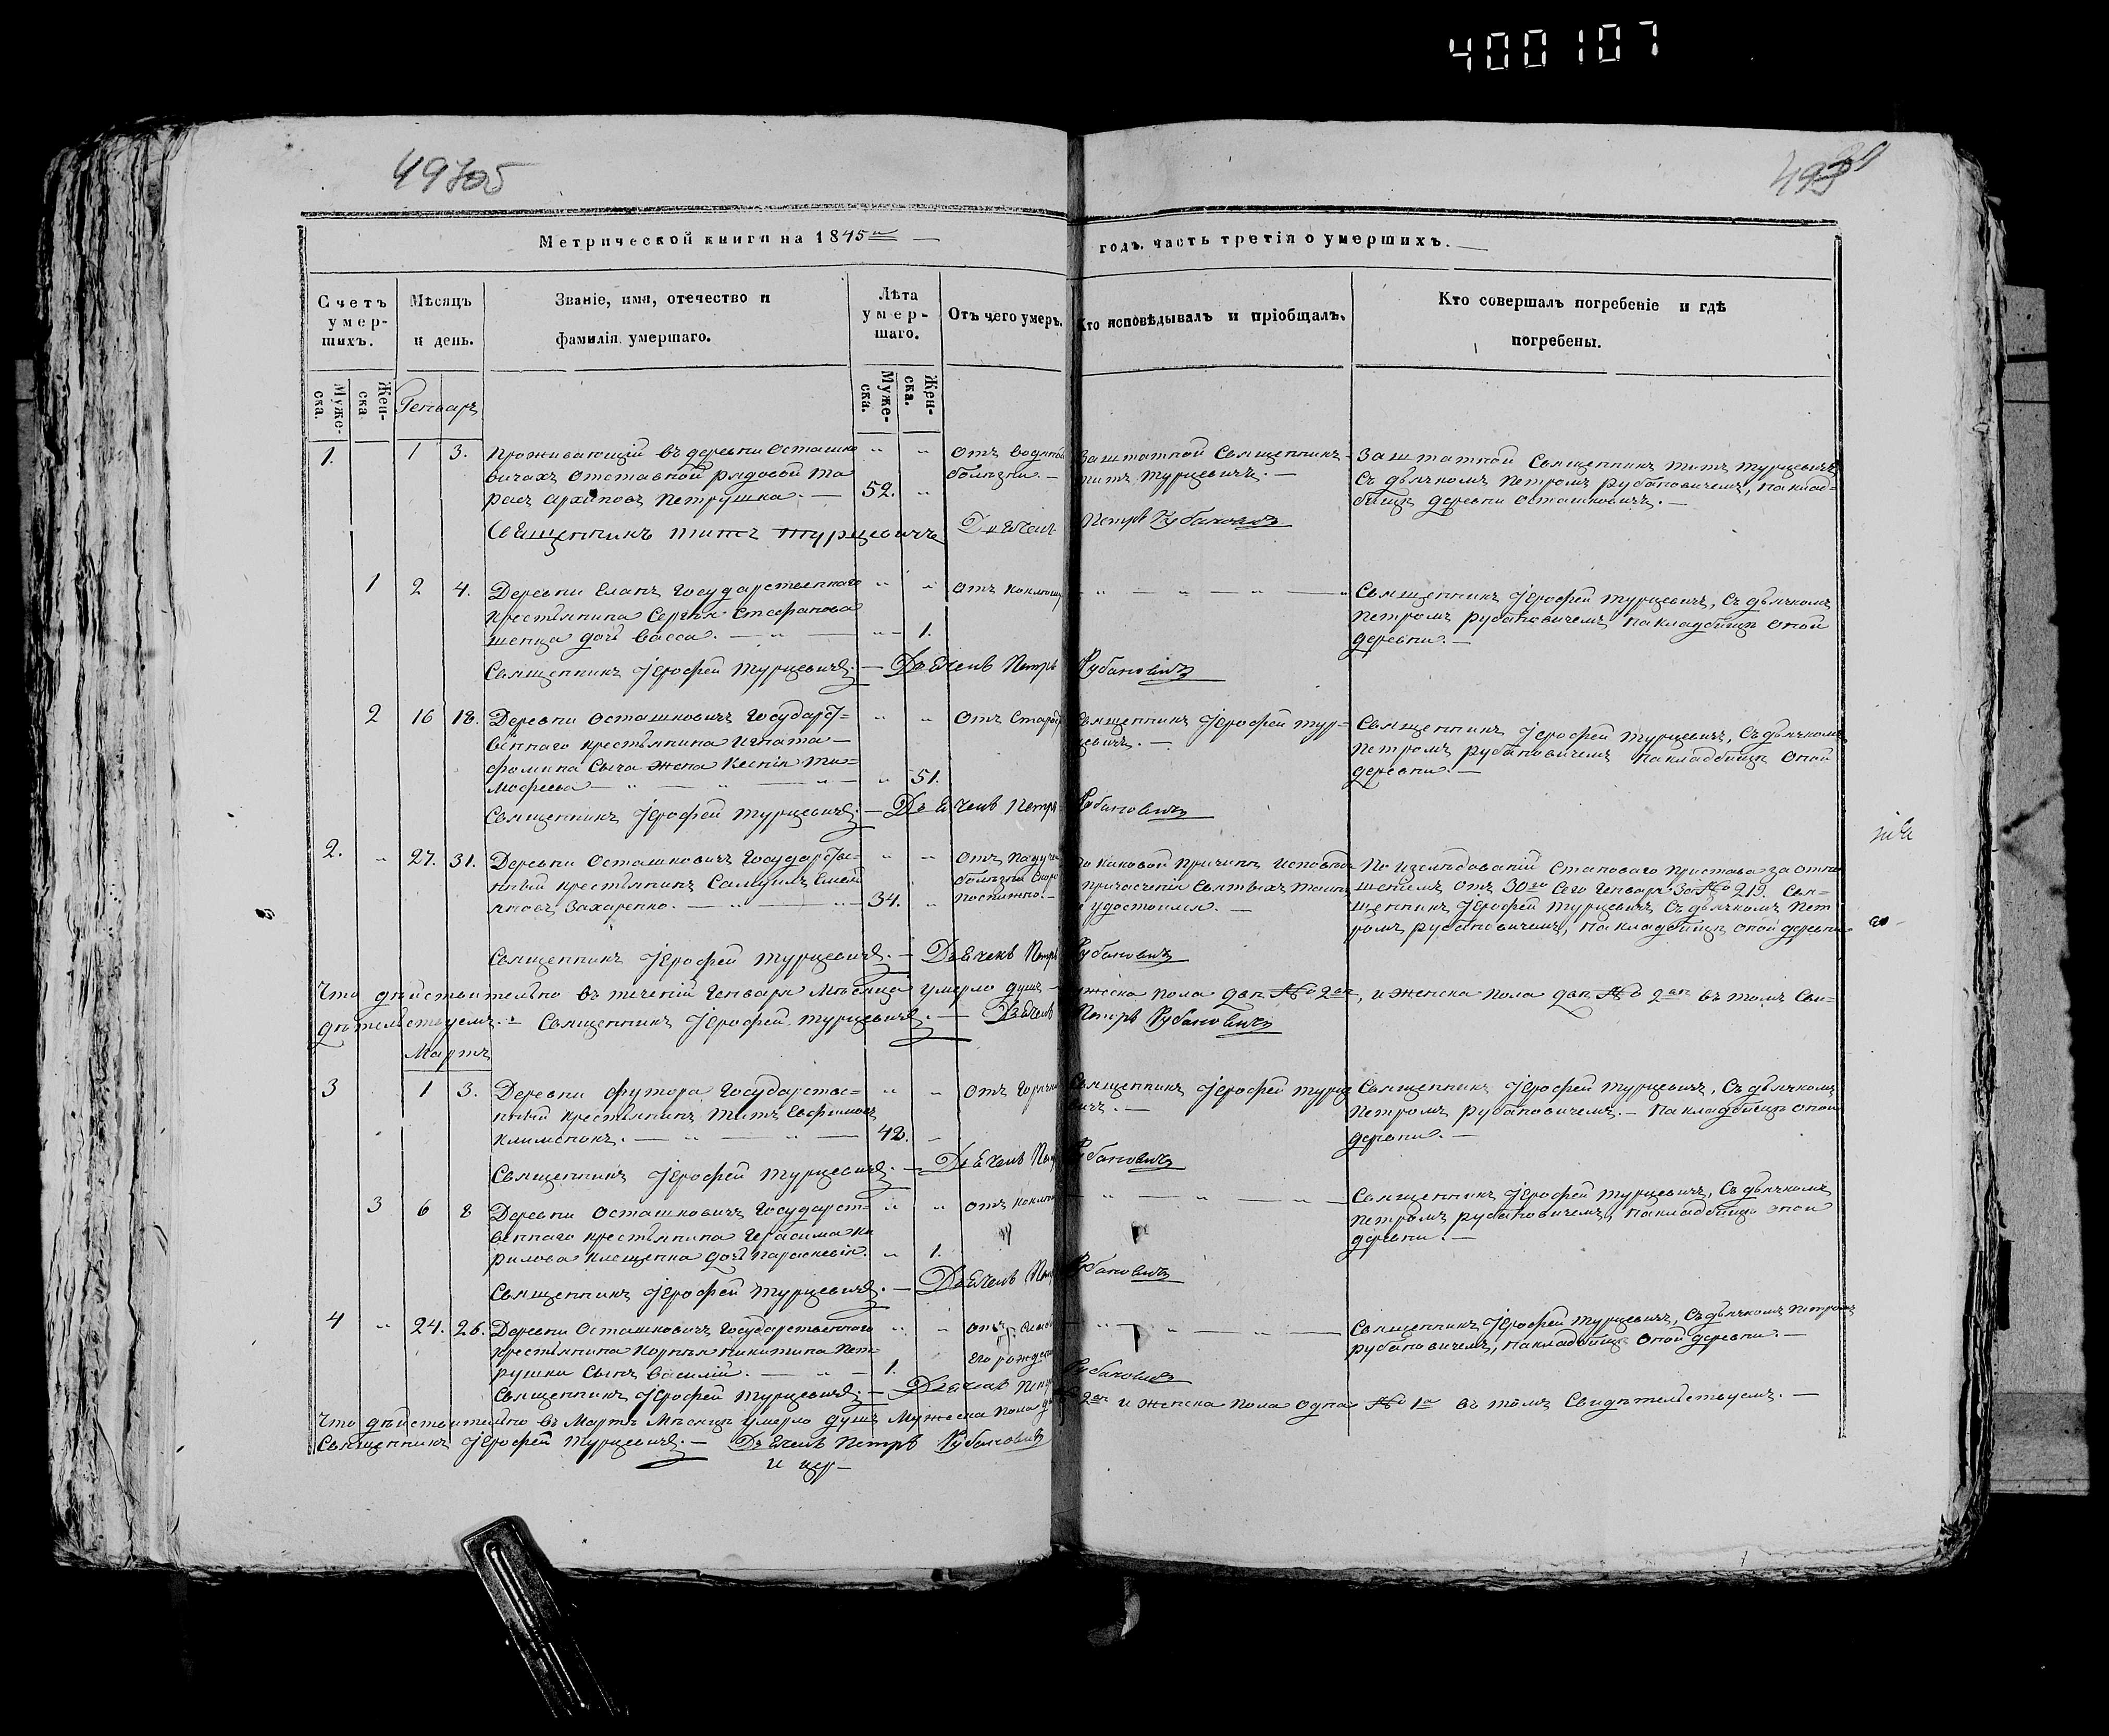 400107
Метрической книги на 1845й годъ. часть третія о умершихъ.
Счетъ умер-шихъ.
Мѣсяцъ и день.
Званіе, имя, отечество и
фамилія умершаго.
Лѣта умер-шаго.
Отъ чего умеръ.
Кто исповѣдывалъ и пріобщалъ.
Кто совершалъ погребеніе и гдѣ
погребены.
Муже-ска.
Жен-ска.
Генварь
Муже-ска.
Жен-ска.
1. 1 3.
Проживающій въ деревни Осташко
вичахъ отставной рядовой та
расъ архиповъ Петрушка. — 52.
отъ водяной
болѣзни. —
Заштатной Священникъ
титъ турцевичъ. —
Заштатной Священникъ титъ турцевичъ
съ дьячкомъ Петромъ рубановичемъ, на клад-
бищѣ деревни Осташковичъ. —
Священникъ титъ турцевичъ Дьячекъ Петръ Рубановичъ
1 2 4.
Деревни Еланъ Государственнаго
крестьянина Сергѣя Стефанова
дочь Васса. — 1.
отъ коклюш
Священникъ Іерофей турцевичъ, съ дьячкомъ
Петромъ рубановичемъ на кладбищѣ оной
деревни. —
Священникъ Іерофей турцевичъ. — Дьячекъ Петръ Рубановичъ
2 16 18.
Деревни Осташковичъ Государст-
веннаго крестьянина Игната —
фомина Сыча жена Ксенія Ти-
мофеева — 51.
отъ Старос
Священникъ Іерофей тур-
цевичъ. —
Священникъ Іерофей турцевичъ, съ дьячкомъ
Петромъ рубановичемъ на кладбищѣ оной
деревни. —
Священникъ Іерофей турцевичъ. — Дьячекъ Петръ Рубановичъ
2. 27. 31.
Деревни Осташковичъ Государстве-
нный крестьянинъ Самуилъ Емел
яновъ Захаренко. — 34.
отъ падуч
болѣзни скоро
постижно. —
По каковой причинѣ исповѣда
причастія Святыхъ таинъ
удостоился. —
По изслѣдованій Становаго Пристава за отно
шеніемъ отъ 30го сего Генваря за № 219. Свя-
щенникъ Іерофей турцевичъ съ дьячкомъ Пет
ромъ рубановичемъ, на кладбищѣ оной деревни
Священникъ Іерофей турцевичъ. — Дьячекъ Петръ Рубановичъ
Что дѣйствительно въ теченій Генваря Мѣсяца умерло душъ мужеска пола двѣ № 2ве, и женска пола двѣ № 2ве въ томъ Сви-
дѣтельствуемъ. — Священникъ Іерофей турцевичъ. — Дьячекъ Петръ Рубановичъ
Мартъ
3 1 3.
Деревни футора Государстве-
нный крестьянинъ титъ Евфимовъ
клименокъ. — 42.
отъ горячк
Священникъ Іерофей турце
вичъ. —
Священникъ Іерофей турцевичъ, съ дьячкомъ
Петромъ рубановичемъ. — на кладбищѣ оной
деревни. —
Священникъ Іерофей турцевичъ. — Дьячекъ Петръ Рубановичъ
3 6 8
Деревни Осташковичъ Государст-
веннаго крестьянина Герасима Ки
рилова клещенка дочь Параскевія. 1.
отъ коклю
Священникъ Іерофей турцевичъ, съ дьячкомъ
Петромъ рубановичемъ, на кладбищѣ оной
деревни. —
Священникъ Іерофей турцевичъ. — Дьячекъ Петръ Рубановичъ
4 24. 26.
Деревни Осташковичъ Государственнаго
крестьянина Корнѣя никитина Пет-
рушки Сынъ Василій. — 1.
отъ слабо
его рожден
Священникъ Іерофей турцевичъ, съ дьячкомъ Петромъ
рубановичемъ, на кладбищѣ оной деревни. —
Священникъ Іерофей турцевичъ. — Дьячекъ Петръ Рубановичъ
Что дѣйствительно въ Мартѣ Мѣсяцѣ умерло душъ Мужеска пола 2ве и женска пола одна № 1а въ томъ Свидѣтельствуемъ. —
Священникъ Іерофей турцевичъ. — Дьячекъ Петръ Рубановичъ